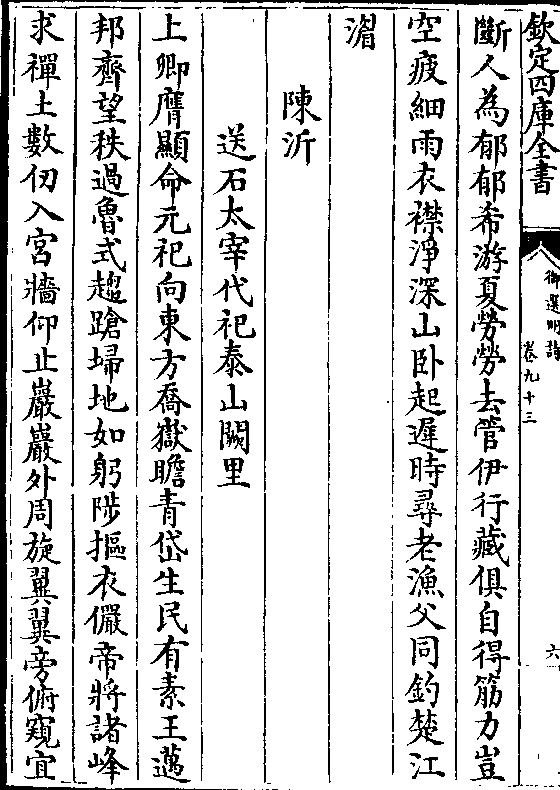 欽定四庫全書
御選明詩
卷九十三
六
斷人為郁郁希游夏勞勞去管伊行藏俱自得筋力豈
空疲細雨衣襟淨深山卧起遲時尋老漁父同釣楚江
湄
陳沂
送石太宰代祀泰山闕里
上卿膺顯命元祀向東方喬嶽瞻青岱生民有素王邁
邦齊望秩過魯式趨蹌埽地如躬陟摳衣儼帝將諸峰
求禪土數仞入宮牆仰止巖巖外周旋翼翼旁俯窺宜